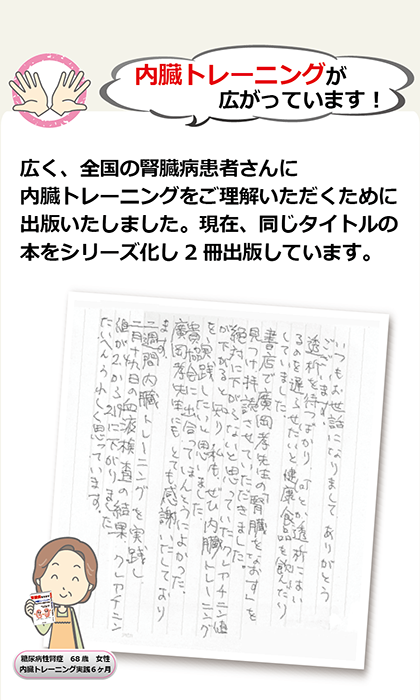 内臓トレーニングが
広がっています！
広く、全国の腎臓病患者さんに
内臓トレーニングをご理解いただくために
出版いたしました。現在、同じタイトルの
本をシリーズ化し２冊出版しています。
いつもお世話になりましてありがとう
ございます。
透析を待つばかり、何とか透析にはい
るのを遅らせたいと健康食品を飲んだり
していました。
書店で廣岡孝先生の「腎臓をなおす」を
見つけ拝読させていただきました。
絶対に下がらないと思っていたクレアチニン値
が下がると知り、私もぜひ内臓トレーニング
を実践したいと思いました。
貴協会に出合ってほんとうによかった、
廣岡孝先生にもとても感謝いたしており
ます。
二週間内臓トレーニングを実践し
二月十九日の血液検査の結果、クレアチニン
値が2.から2.19に下がりました
たいへんうれしく思っています。
糖尿病性腎症　68歳　女性
内臓トレーニング実践６ヶ月